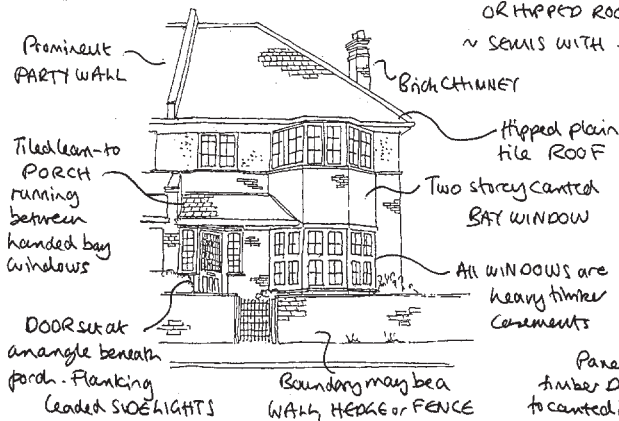 OR HIPPED ROO
~ SEMIS WITH
Prominent
PARTY WALL
Brick CHIMNEY
Hipped plain
tile ROOF
Tiled lean-to
PORCH
running
between
handed bay
windows
Two storey canted
BAY WINDOW
All WINDOWS are
heavy timber
casements
DOOR set at
an angle beneath
porch. Flanking
leaded SIDELIGHTS
Boundary may be a
WALL, HEDGE or FENCE
Pane
timber D
to canted